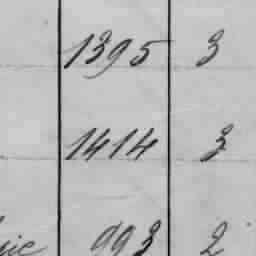 1395 3
1414 3
993 2